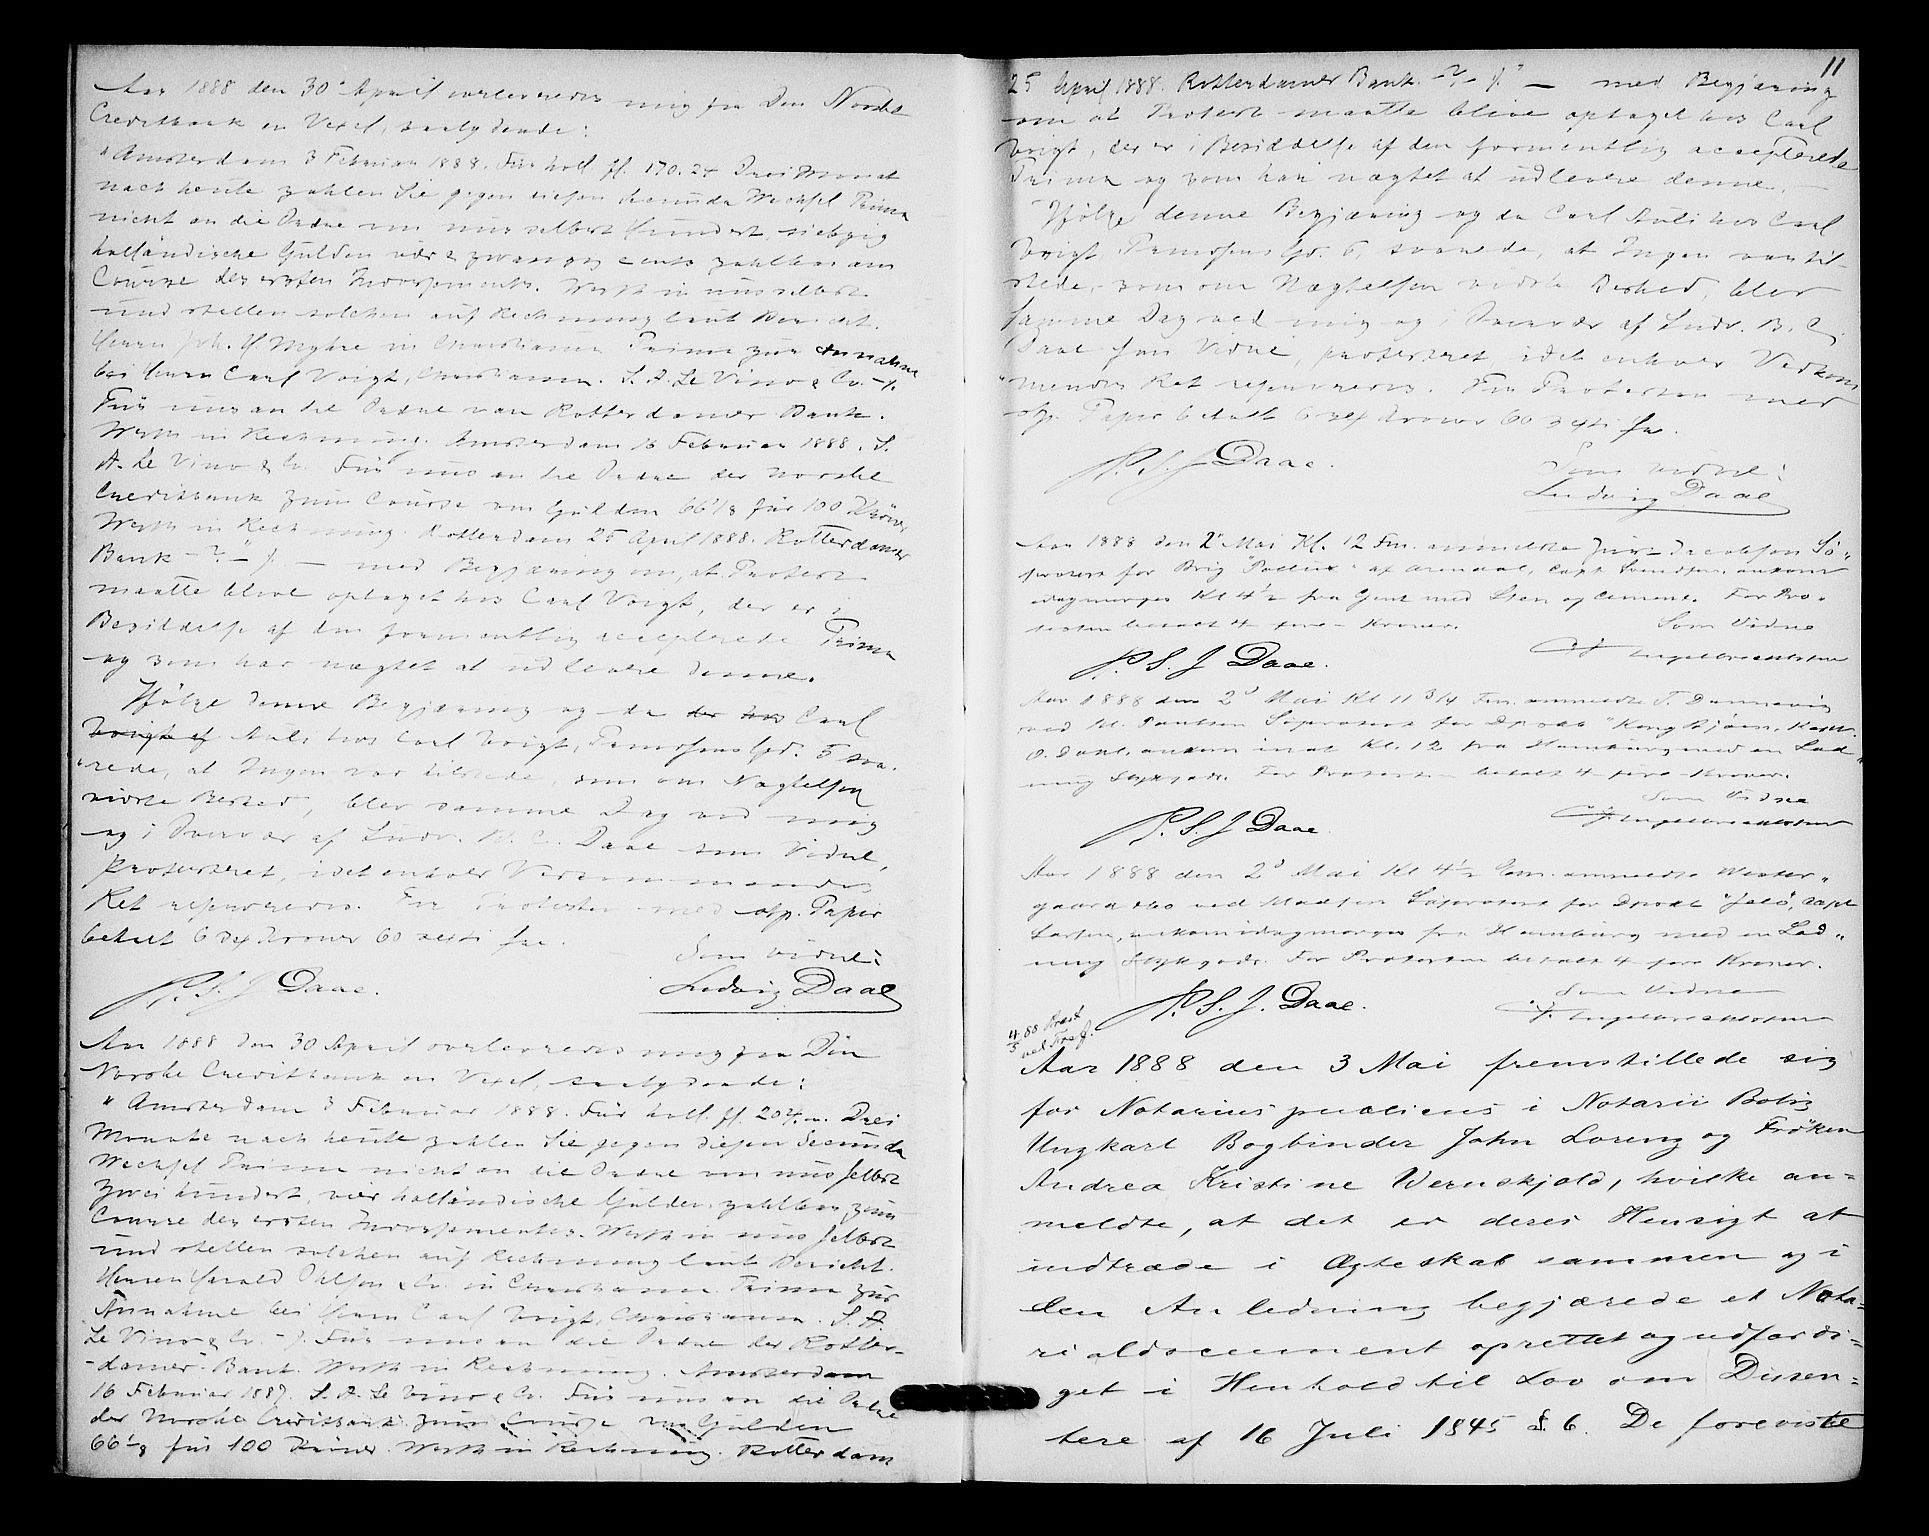 Aar 1888 den 30' April overleveredes mig fra Den Norske
Creditbank en Vexel, saalydende:
"Amsterdam 3 Februar 1888. Für holl. fl. 170.24 Drei Monat
nach heute zahlen Sie gegen diesen Secunda Wechsel Prima
nicht an die Ordre von uns selbst Hundert siebzig
holländische Gulden und zwanzig cents zahlbar am
Course des ersten Indossements. Werth in uns selbst
und stellen solchen auf Rechnung laut Bericht.
Herrn Joh. H. Myhre in Christiania Prima zur Annahme
bei Herrn Carl Voigt, Christiania. S. A. Le Vino & Co. -/.
Für uns an die Ordre van Rotterdamer Bank.
Werth in Rechnung. Amsterdam 16 Februar 1888. S.
A. Le Vino & Co. Für uns an die Ordre der Norske
Creditbank zum Course von Gulden 66 1/8 für 100 Kröner
Werth in Rechnung. Rotterdam 25 April 1888. Rotterdamer
Bank -?- /." — med Begjæring om, at Protest
maatte blive optaget hos Carl Voigt, der er i
Besiddelse af den formentlig accepterede Prima
og som har nægtet at udlevere denne.
Ifølge denne Begjæring og da der hos Carl
Voigt af Auli hos Carl Voigt, Prindsens Gd. 5 sva-
"rede, at Ingen var tilstede, som om Nægtelsen
vidste Besked, blev samme Dag ved mig
og i Overvær af Ludv. B. C. Daae som Vidne,
protesteret, idet enhver Vedkommendes
Ret reserveredes. For Protesten med stp. Papir
betalt 6 sex Kroner 60 sexti øre.
Som Vidne:
P. S. J. Daae. Ludvig Daae
Aar 1888 den 30 April overleveredes mig fra Den
Norske Creditbank en Vexel, saalydende:
"Amsterdam 3 Februar 1888. Für holl. fl. 204,". Drei
Monate nach heute zahlen Sie gegen diesen Secunda
Wechsel Prima nicht an die Ordre von uns selbst
Zwei hundert, vier holländische Gulden, zahlbar zum
Course des ersten Indossementes. Werth in uns selbst
und stellen solchen auf Rechnung laut Bericht.
Herren Harald Olsen & Co. in Christiania Prima zur
Annahme bei Herrn Carl Voigt, Christiania. S. A.
Le Vino & Co. -/. Für uns an die Ordre der Rotter-
-damer Bank. Werth in Rechnung. Amsterdam
16 Februar 1887. S. A. Le Vino & Co. Für uns an die Ordre
der Norske Creditbank zum Course von Gulden
66 1/8 für 100 Kröner. Werth in Rechnung. Rotterdam
11
25 April 1888. Rotterdamer Bank. -?- /." — med Begjæring
om at Protest maatte blive optaget hos Carl
Voigt, der er i Besiddelse af den formentlig accepterede
Prima og som har nægtet at udlevere denne. —
Ifølge denne Begjæring og da Carl Auli hos Carl
Voigt Prindsens Gd. 5, svarede, at Ingen var til-
stede, som om Nægtelsen vidste Besked, blev
samme Dag ved mig og i Overvær af Ludv. B. C.
Daae som Vidne, protesteret, idet enhver Vedkom
"mendes Ret reserveredes. For Protesten med
stp. Papir betalt 6 sex Kroner 60 sexti øre.
P. S. J Daae. Som Vidne:
Ludvig Daae
Aar 1888 den 2' Mai Kl. 12 Fm. anmeldte Jacobsen Sö-
protest for Brig "Pollux" af Arendal, Capt Svendsen, ankom
idagmorges Kl 4 1/2 fra Gent med Sten og Cement. For Pro-
testen betalt 4 fire - Kroner. Som Vidne
P. S. J Daae. Engelbrechtsen
Aar 1888 den 2' Mai Kl 11 3/4 Fm. anmeldte T. Dannevig
ved Kl. Paulsen Söprotest for Dpsk "Kong Bjørn", Kapt.
O. Dahl, ankom inat Kl. 12 fra Hamburg med en Lad-
ning Stykgods. For Protesten betalt 4 fire Kroner.
Som Vidne
P. S. J Daae Engelbrechtsen
Aar 1888 den 2' Mai Kl 4 1/2 Em. anmeldte Wester-
gaard & Co ved Madsen Söprotest for Dpsk "Jelö", Capt
Larsen, ankom idagmorges fra Hamburg med en Lad-
ning Stykgods. For Protesten betalt 4 fire Kroner.
Som Vidne
P. S. J. Daae. Engelbrechtsen
4/5 88
Aar 1888 den 3 Mai fremstillede sig
for Notarius publicus i Notarii Bolig
Ungkarl Bogbinder John Lorenz og Frøken
Andrea Kristine Wernskjold, hvilke an-
meldte, at det er deres Hensigt at
indtræde i Ægteskab sammen og i
den Anledning begjærede et Nota-
rialdocument oprettet og udfærdi-
get i Henhold til Lov om Dissen-
tere af 16 Juli 1845 § 6. De foreviste